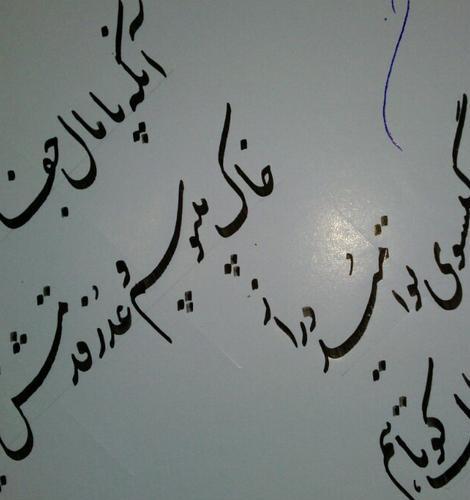 آنکه پامال جفا
خاک میبوسم و عذر قدمش
گیسوی تو امید دراز
کوتاهم